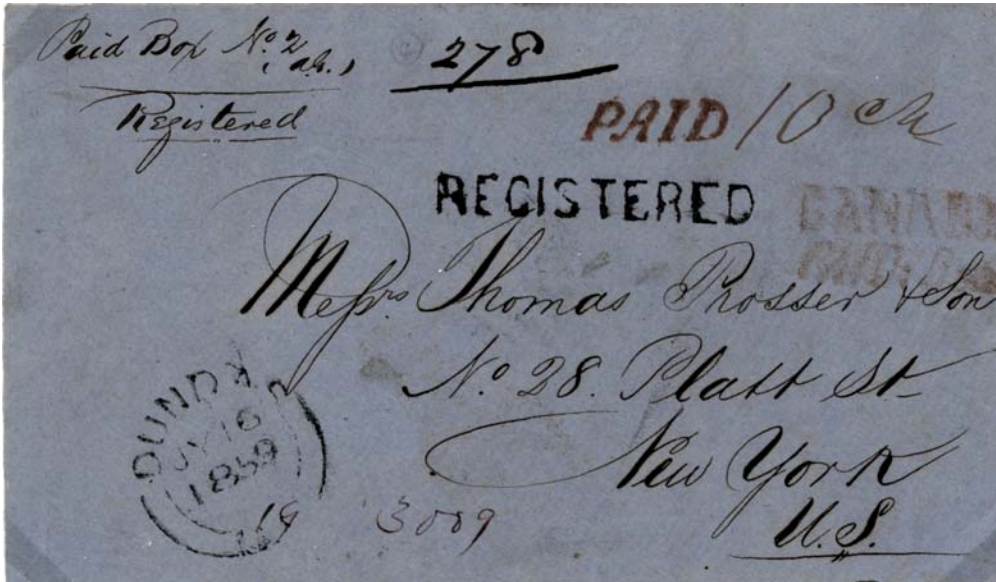 Paid Box No. 2 278
Registered
PAID 10 cts
REGISTERED CANADA
Messrs. Thomas Prosser & Son
No 28. Platt St
New York
U.S.
DUNDAS
JY 16
1859
3009